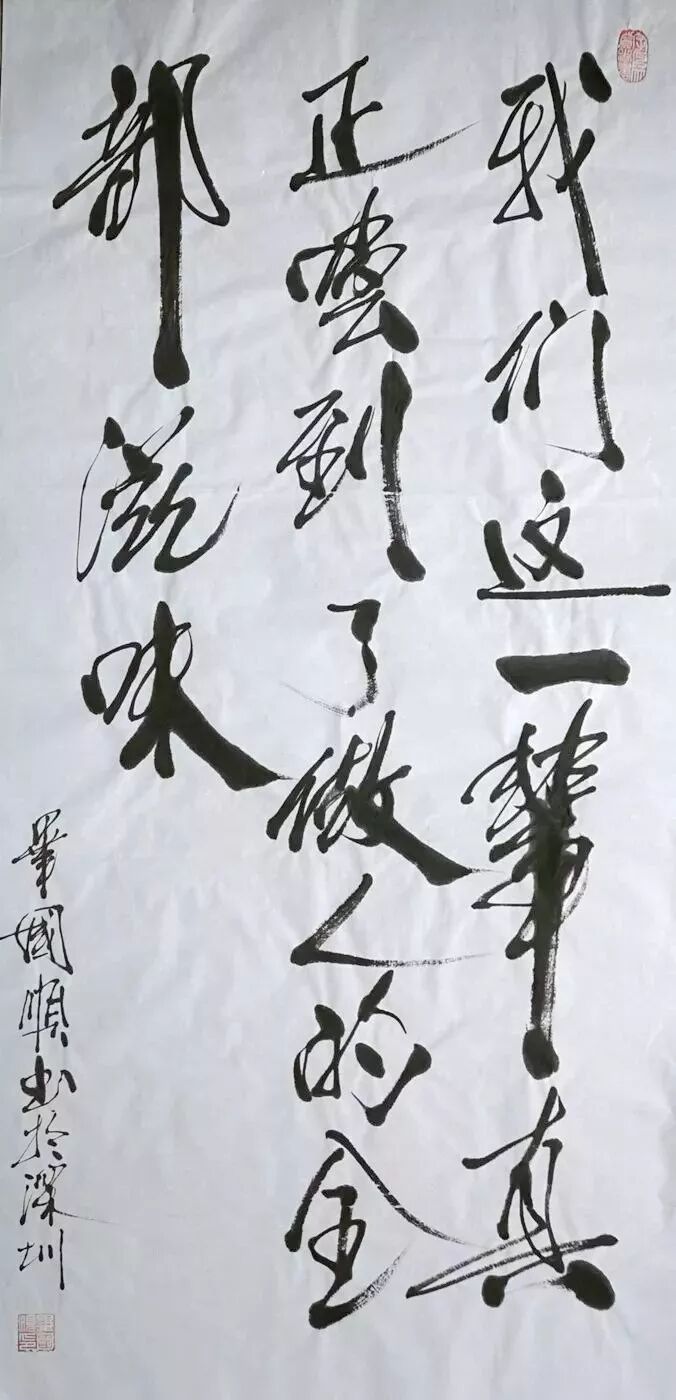 我们这一辈真
正尝到了做人的全
部滋味
畢國順书於深圳